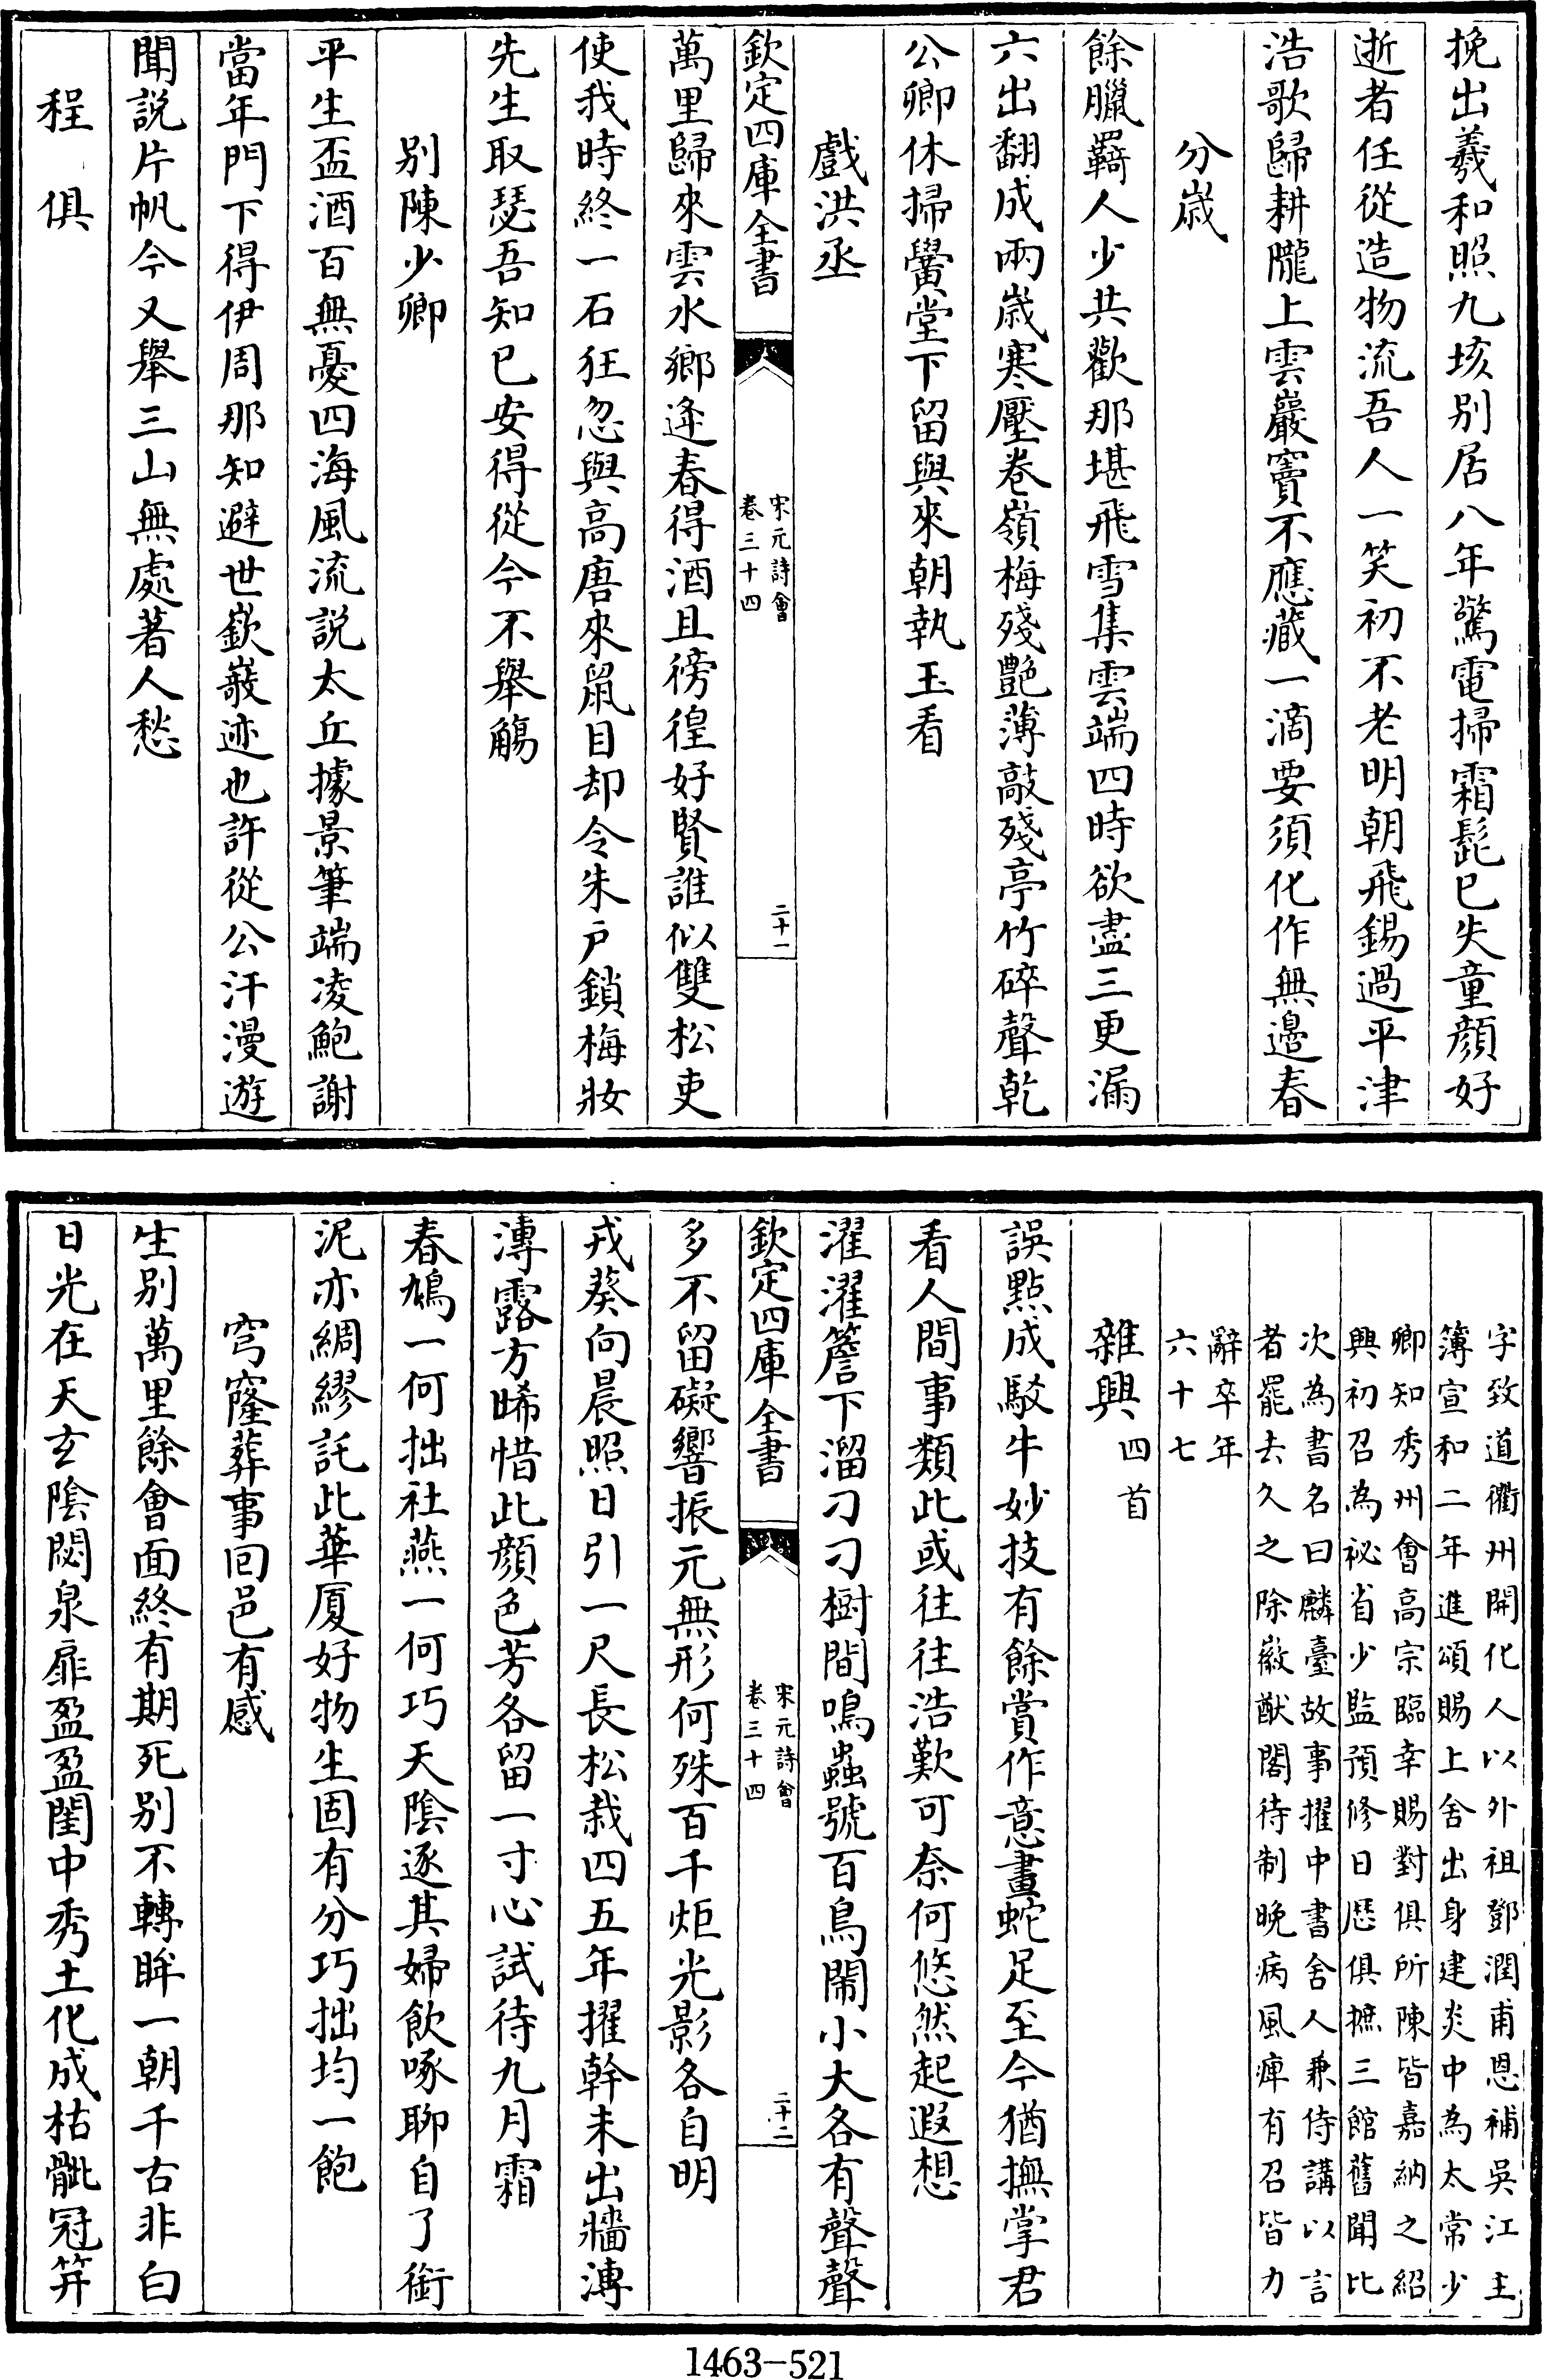 挽出羲和照九垓别居八年驚電掃霜髭已失童顔好
逝者任從造物流吾人一笑初不老明朝飛錫過平津
浩歌歸耕隴上雲巖竇不應藏一滴要須化作無邊春
分嵗
餘臘羇人少共歡那堪飛雪集雲端四時欲盡三更漏
六出翻成兩嵗寒壓卷嶺梅殘艷薄敲殘亭竹碎聲乾
公卿休掃黌堂下留與來朝執玉看
戲洪丞
欽定四庫全書
宋元詩會
卷三十四
二十一
萬里歸來雲水鄉逢春得酒且徬徨好賢誰似雙松吏
使我時終一石狂忽與高唐來鼠目却令朱戸鎖梅妝
先生取瑟吾知已安得從今不舉觴
别陳少卿
平生盃酒百無憂四海風流説太丘據景筆端凌鮑謝
當年門下得伊周那知避世嶔㟯迹也許從公汗漫遊
聞説片帆今又舉三山無處著人愁
程俱
字致道衢州開化人以外祖鄧潤甫恩補吳江主
簿宣和二年進頌賜上舍出身建炎中為太常少
卿知秀州會高宗臨幸賜對俱所陳皆嘉納之紹
興初召為祕省少監預修日厯俱摭三館舊聞比
次為書名曰麟臺故事擢中書舍人兼侍講以言
者罷去久之除徽猷閣待制晚病風痺有召皆力
辭卒年
六十七
雜興四首
誤點成駁牛妙技有餘賞作意畫蛇足至今猶撫掌君
看人間事類此或往往浩歎可奈何悠然起遐想
濯濯簷下溜刁刁樹間鳴蟲號百鳥鬧小大各有聲聲
欽定四庫全書
宋元詩會
卷三十四
二十二
多不留礙響振元無形何殊百千炬光影各自明
戎葵向晨照日引一尺長松栽四五年擢幹未出牆漙
漙露方晞惜此顔色芳各留一寸心試待九月霜
春鳩一何拙社燕一何巧天陰逐其婦飲啄聊自了銜
泥亦綢繆託此華厦好物生固有分巧拙均一飽
穹窿葬事回邑有感
生别萬里餘會面終有期死别不轉眸一朝千古非白
日光在天玄陰閟泉扉盈盈閨中秀土化成枯骴冠笄
1463-521